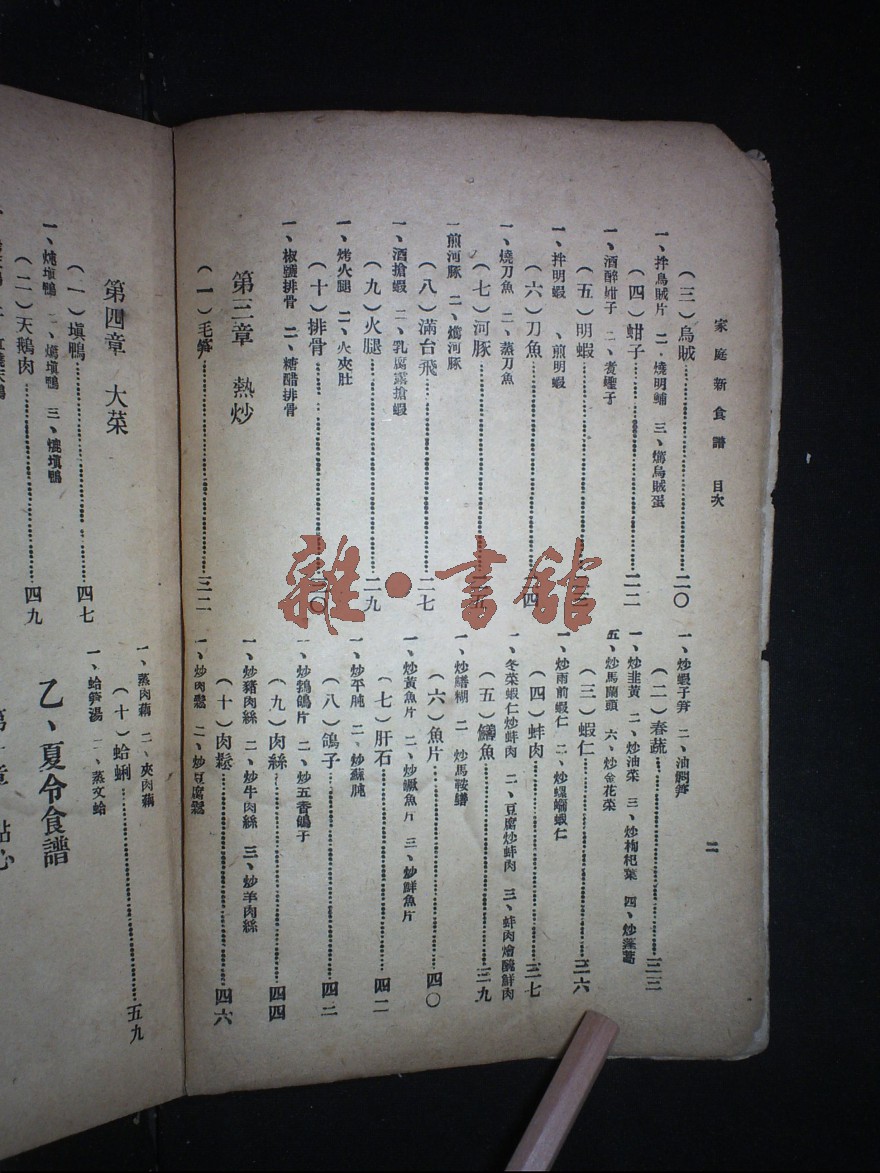 家庭新食譜 目次
二
(三)烏賊……二〇
一、拌烏賊片 二、燒明蜅 三、燉烏賊蛋
(四)蚶子……二二
一、酒醉蚶子 二、煮蟶子
(五)明蝦……
一、拌明蝦 、煎明蝦
(六)刀魚……四
一、燒刀魚 二、蒸刀魚
(七)河豚……
一煎河豚 二、燉河豚
(八)滿台飛……二七
一、酒搶蝦 二、乳腐露搶蝦
(九)火腿……二九
一、烤火腿 二、火夾肚
(十)排骨……〇
一、椒鹽排骨 二、糖醋排骨
第三章 熱炒
(一)毛笋……三二
一、炒蝦子笋 二、油燜笋
(二)春蔬……三三
一、炒韭黃 二、炒油菜 三、炒枸杞葉 四、炒蓬蒿
五、炒馬蘭頭 六、炒金花菜
(三)蝦仁……三六
一、炒雨前蝦仁 二、炒螺螄蝦仁
(四)蚌肉……三七
一、冬菜蝦仁炒蚌肉 二、豆腐炒蚌肉 三、蚌肉燴醃鮮肉
(五)鱔魚……三九
一、炒鱔糊 二、炒馬鞍鱔
(六)魚片……四〇
一、炒黃魚片 二、炒鱖魚片 三、炒鮮魚片
(七)肝石……四二
一、炒平肫 二、炒蘇肫
(八)鴿子……四三
一、炒鵓鴿片 二、炒五香鴿子
(九)肉絲……四四
一、炒豬肉絲 二、炒牛肉絲 三、炒羊肉絲
(十)肉鬆……四六
一、炒肉鬆 二、炒豆腐鬆
雜·書館
第四章 大菜
(一)塡鴨……四七
一、燉塡鴨 二、燒塡鴨 三、爊塡鴨
(二)天鵝肉……四九
一、蒸肉藕 二、夾肉藕
(十)蛤蜊……五九
一、蛤笋湯 二、蒸文蛤
乙、夏令食譜